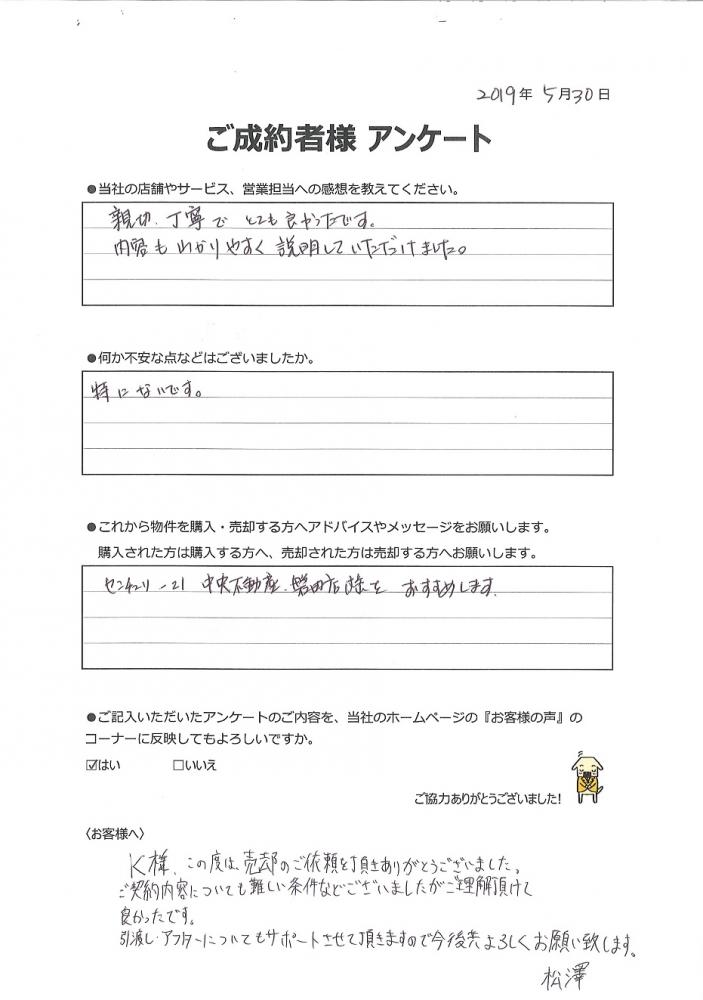 2019年 5月30日
ご成約者様 アンケート
●当社の店舗やサービス、営業担当への感想を教えてください。
親切、丁寧で とても良かったです。
内容も わかりやすく 説明していただけました。
●何か不安な点などはございましたか。
特にないです。
●これから物件を購入・売却する方へアドバイスやメッセージをお願いします。
購入された方は購入する方へ、売却された方は売却する方へお願いします。
センチュリー21 中央不動産、磐田店 おすすめします。
●ご記入いただいたアンケートのご内容を、当社のホームページの『お客様の声』の
コーナーに反映してもよろしいですか。
☑はい □いいえ
ご協力ありがとうございました!
〈お客様へ〉
K様、この度は、売却のご依頼を頂きありがとうございました。
ご契約内容についても難しい条件などございましたがご理解頂けて
良かったです。
引渡し・アフターについてもサポートさせて頂きますので今後共よろしくお願い致します。
松澤